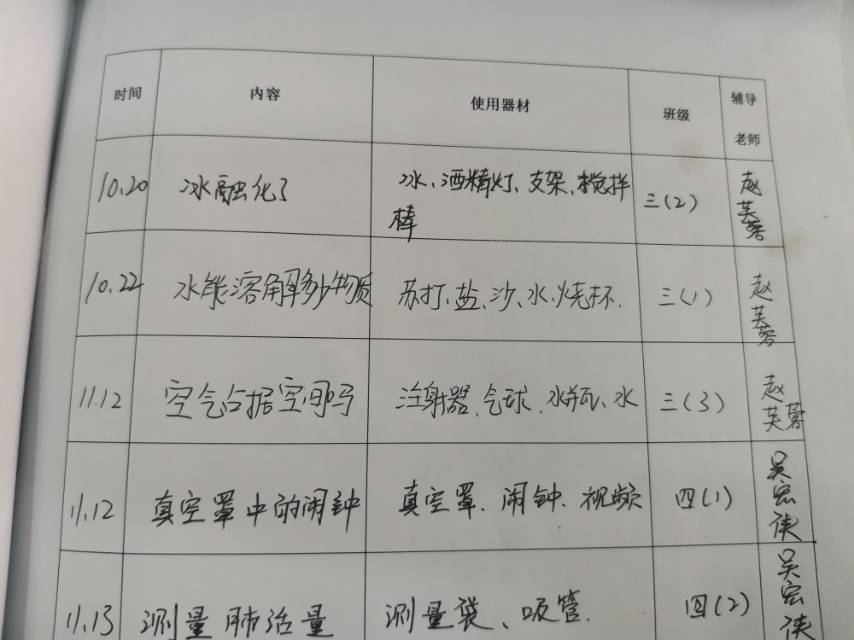 时间 内容 使用器材 班级 辅导老师
10.20 冰融化了 冰、酒精灯、支架、搅拌棒 三(2) 赵芙蓉
10.22 水能溶解多少物质 苏打、盐、沙、水、烧杯. 三(1) 赵芙蓉
11.12 空气占据空间吗 注射器、气球、水瓶、水 三(3) 赵芙蓉
11.12 真空罩中的闹钟 真空罩、闹钟、视频 四(1) 吴宏
11.13 测量肺活量 测量袋、吸管. 四(2) 吴宏